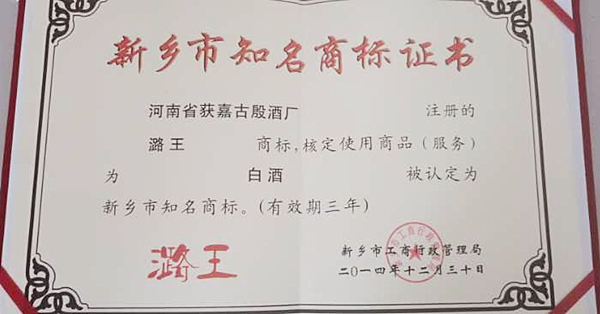 新乡市知名商标证书
河南省获嘉古殷酒厂 注册的
潞王 商标，核定使用商品（服务）
为 白酒 被认定为
新乡市知名商标。(有效期三年)
潞王
新乡市工商行政管理局
二〇一四年十二月三十日